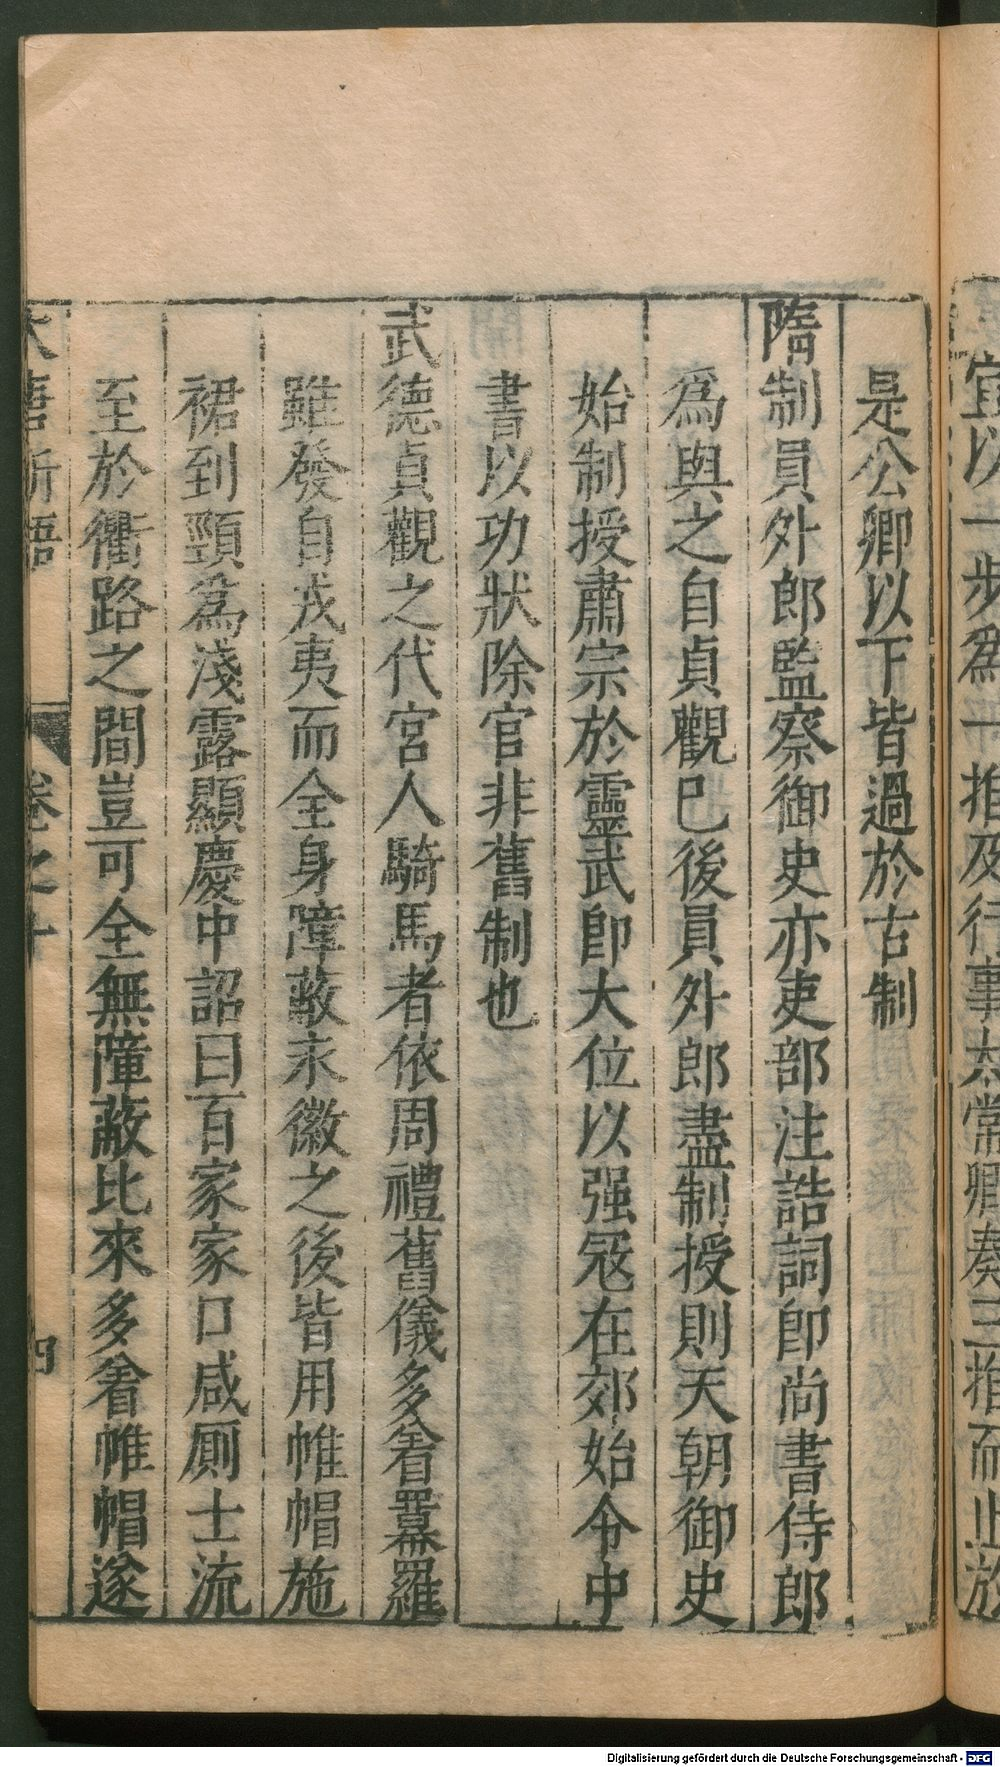 宜以一步爲一推及行事太常卿奏三推而止於
是公卿以下皆過於古制
隋制員外郎監察御史亦吏部注誥詞卽尚書侍郎
爲與之自貞觀已後員外郎盡制授則天朝御史
始制授肅宗於靈武卽大位以强冦在郊始令中
書以功狀除官非舊制也
武德貞觀之代宮人騎馬者依周禮舊儀多着羃羅
雖發自戎夷而全身障蔽永徽之後皆用帷帽施
裙到頸爲淺露顯慶中詔曰百家家口咸厠士流
至於衢路之間豈可全無障蔽比來多着帷帽遂
大唐新語 卷之十 四
Digitalisierung gefördert durch die Deutsche Forschungsgemeinschaft - DFG